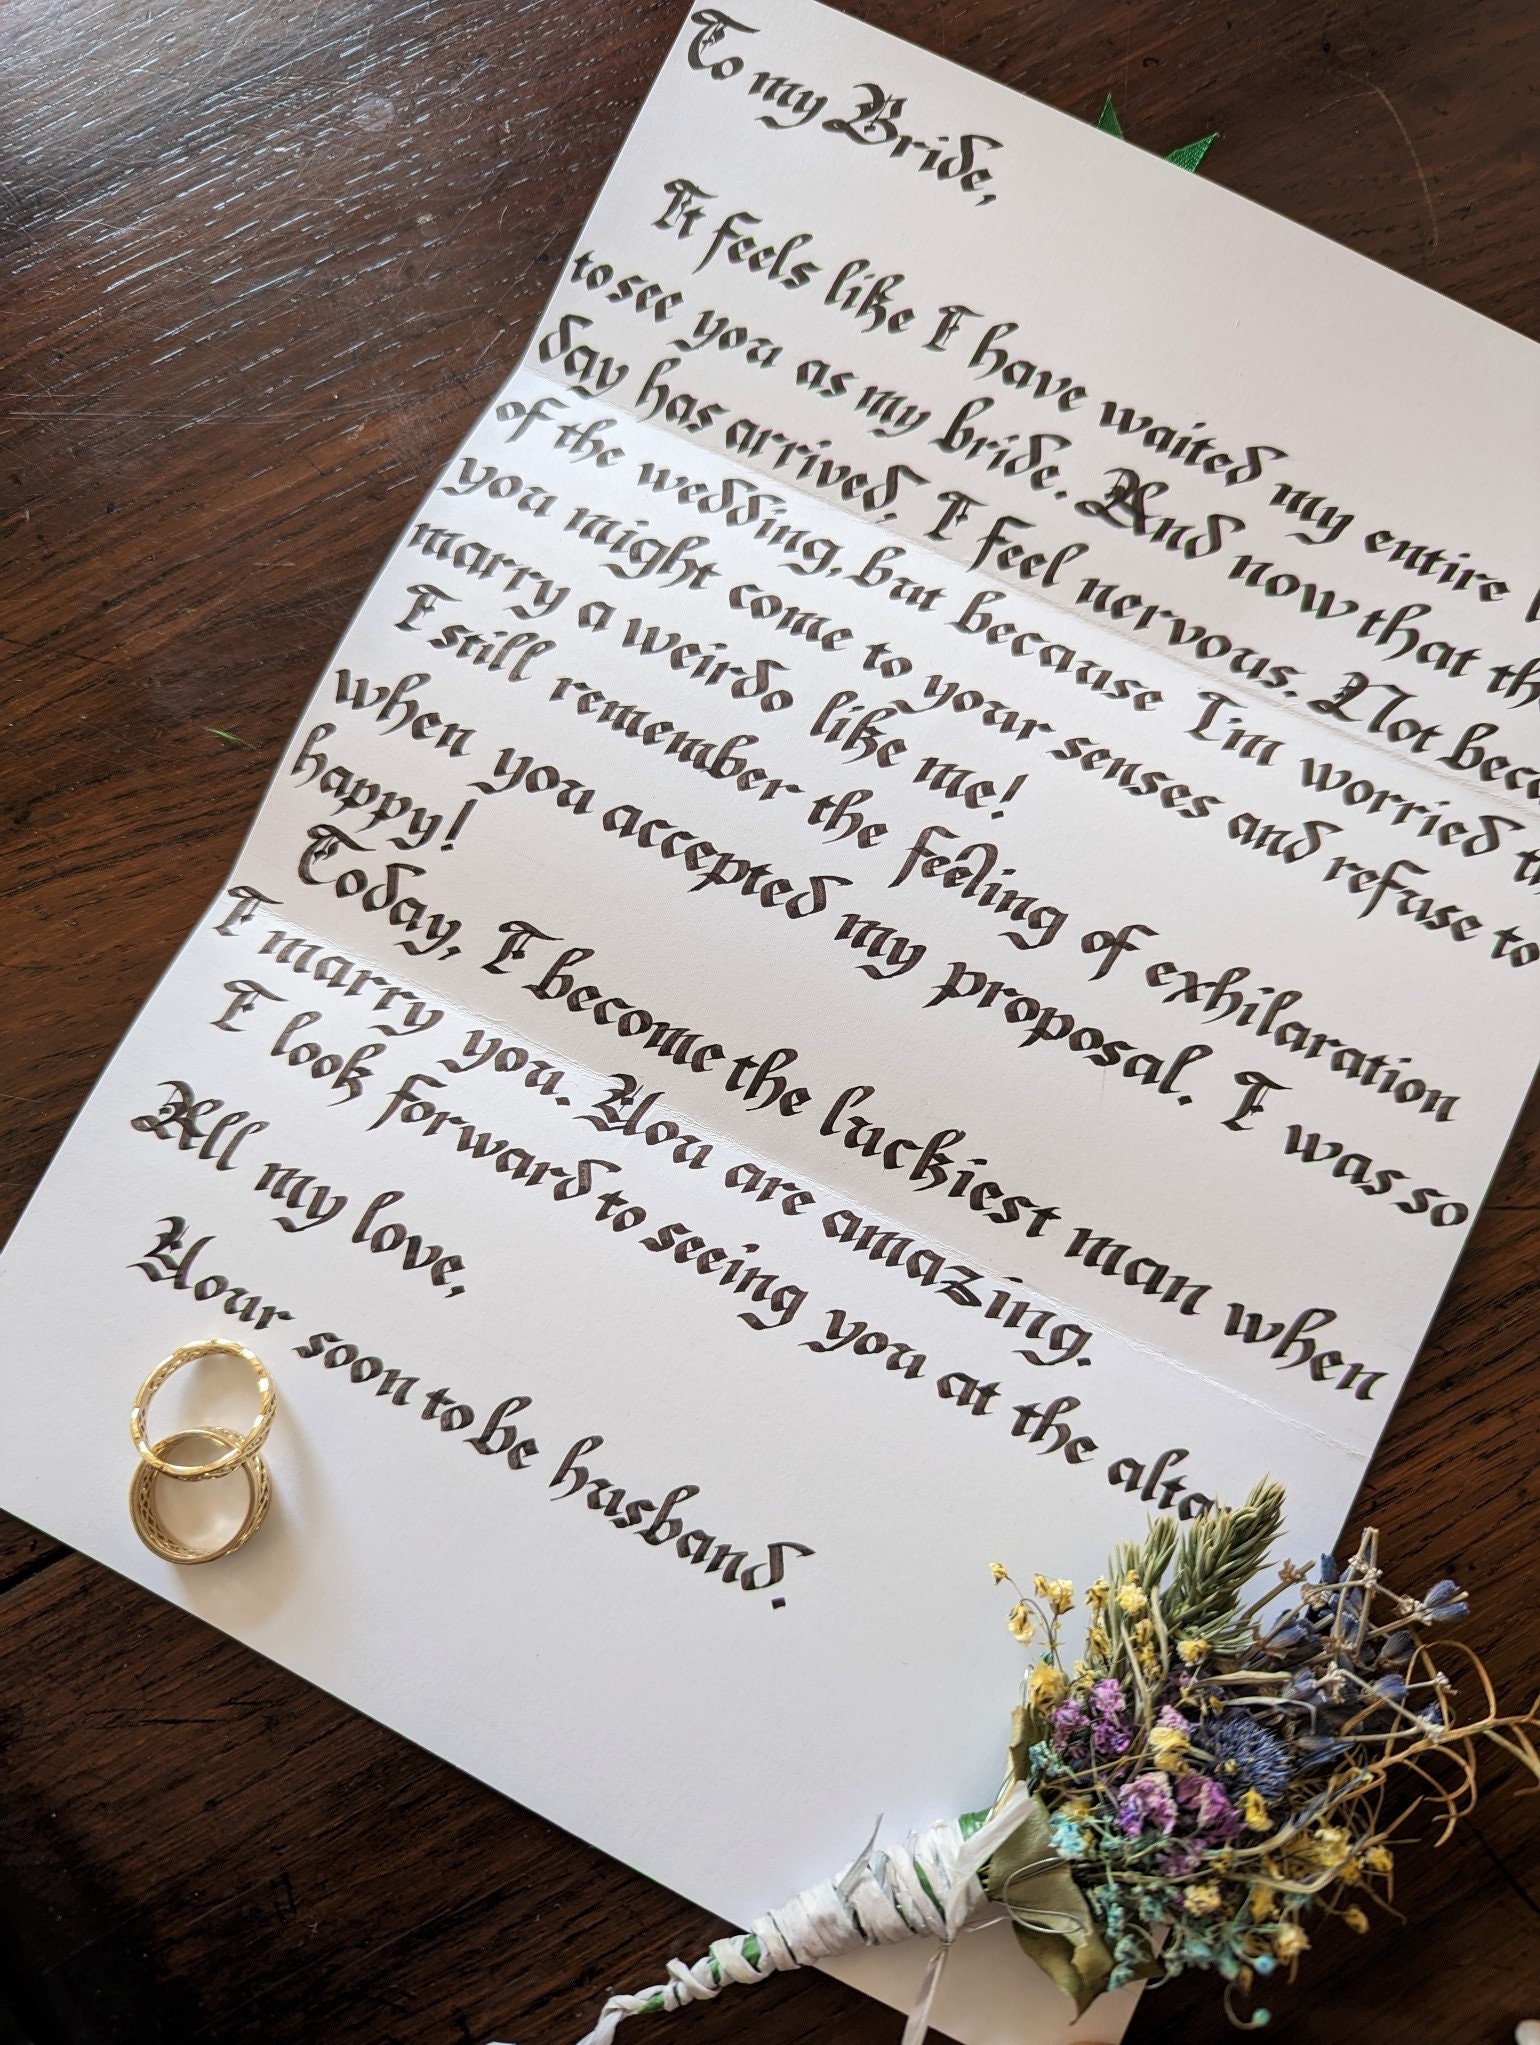 To my Bride,
It feels like I have waited my entire
to see you as my bride. And now that
day has arrived, I feel nervous. Not
of the wedding, but because I'm worried
you might come to your senses and refuse to
marry a weirdo like me!
I still remember the feeling of exhilaration
when you accepted my proposal. I was so
happy!
Today, I become the luckiest man when
I marry you. You are amazing.
I look forward to seeing you at the
All my love,
Your soon to be husband.